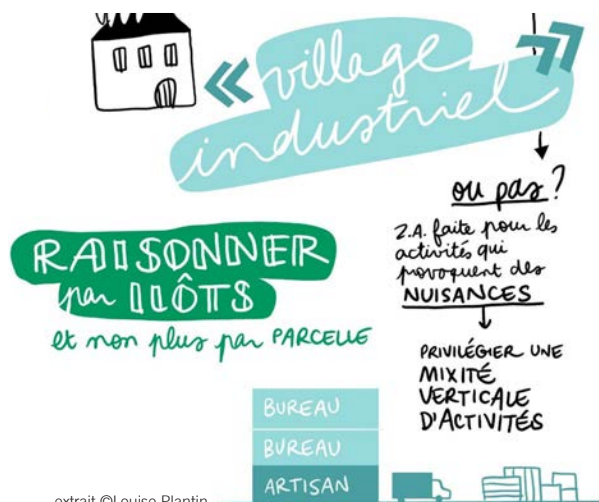 « village
industriel »
ou pas?
Z.A. faite pour les
activités qui
provoquent des
NUISANCES
PRIVILÉGIER UNE
MIXITÉ
VERTICALE
D'ACTIVITÉS
RAISONNER
par ILÔTS
et non plus par PARCELLE
BUREAU
BUREAU
ARTISAN
extrait ©Louise Plantin